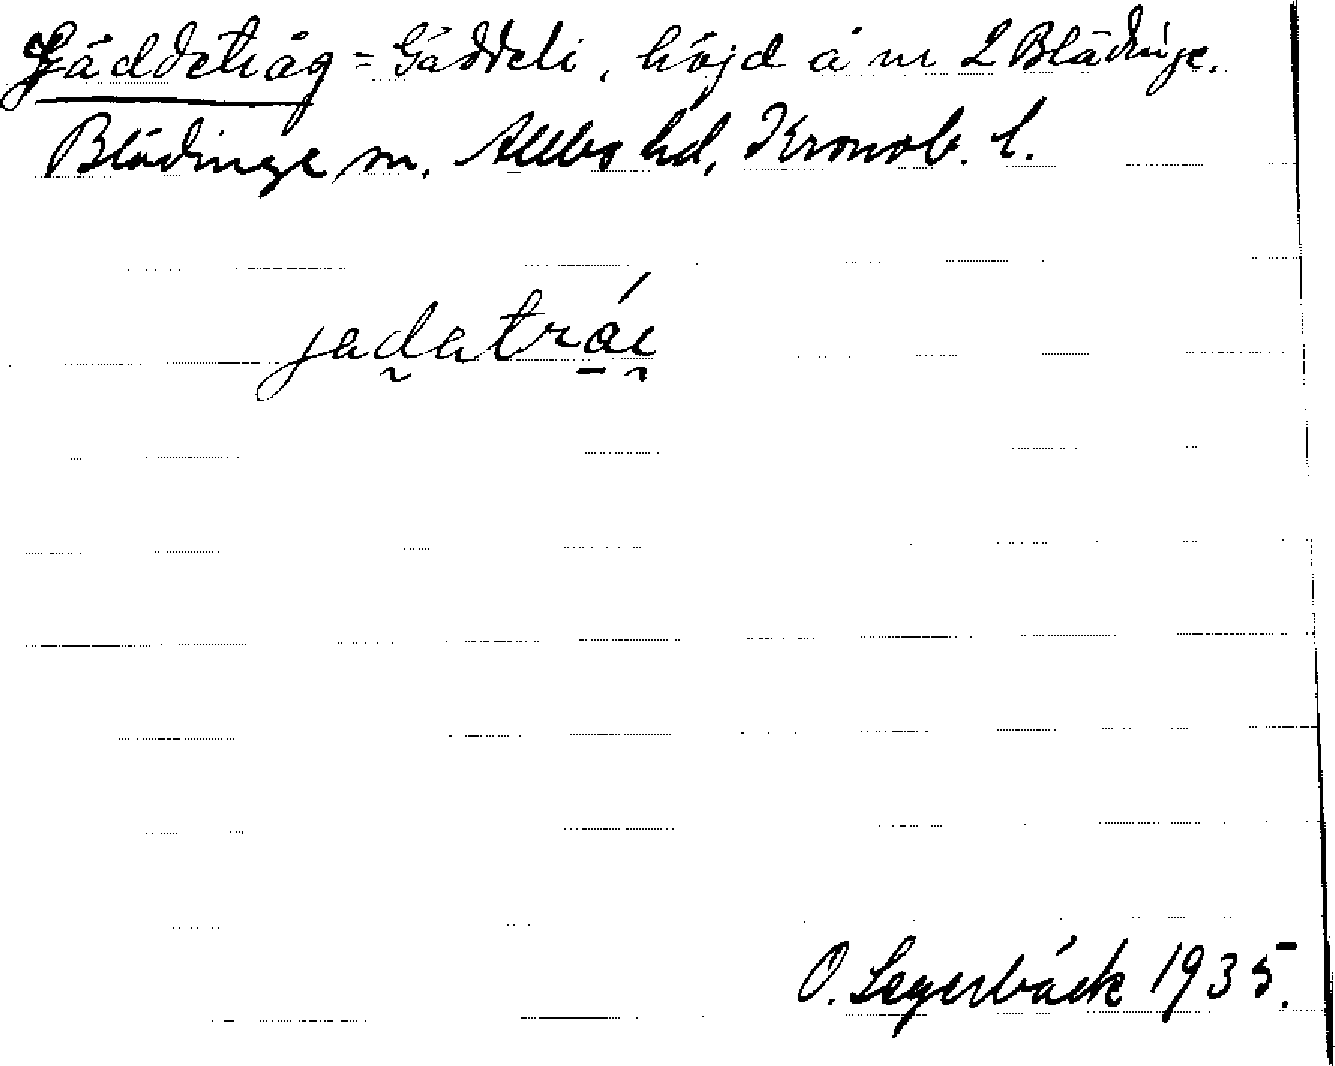 Gäddetråg = Gäddeli, höjd å nr 2 Blädinge.
Blädinge sn. Allbo hd, Kronob. l.
jadatråi
O. Segerbäck 1935.